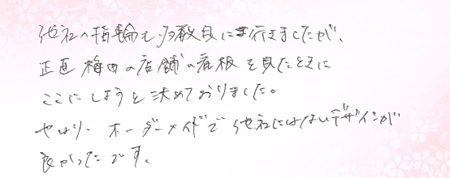 他社へ指輪も多数見に行きましたが、
正直梅田の店舗の看板を見たときに
ここにしようと決めておりました。
やはり、オーダーメイドで他社にはないデザインが
良かったです。